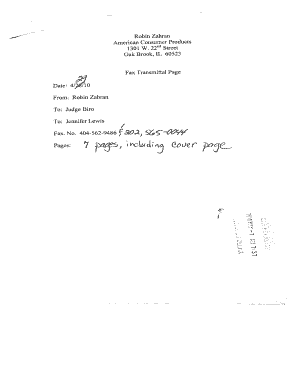 Robin Zahran
American Consumer Products
1301 W. 22nd Street
Oak Brook, IL 60523
Fax Transmittal Page
29
Date: 4/28/10
From: Robin Zahran
To: Judge Biro
To: Jennifer Lewis
Fax. No. 404-562-9486 & 202, 565-0044
Pages: 7 pages, including cover page